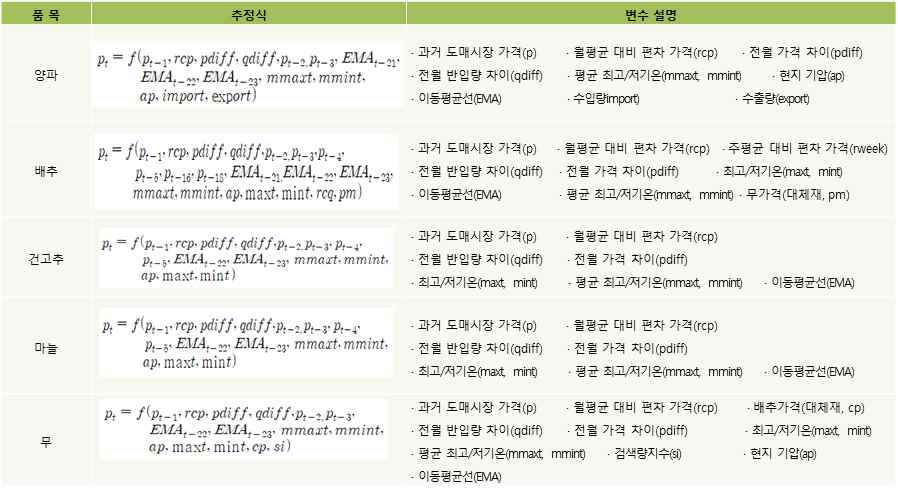 품 목 추정식 변수 설명
양파
p_t = f(p_{t-1}, rcp, pdiff, qdiff, p_{t-2}, p_{t-3}, EMA_{t-21},
EMA_{t-22}, EMA_{t-23}, mmaxt, mmint,
ap, import, export)
· 과거 도매시장 가격(p) · 월평균 대비 편차 가격(rcp) · 전월 가격 차이(pdiff)
· 전월 반입량 차이(qdiff) · 평균 최고/저기온(mmaxt, mmint) · 현지 기압(ap)
· 이동평균선(EMA) · 수입량import) · 수출량(export)
배추
p_t = f(p_{t-1}, rcp, pdiff, qdiff, p_{t-2}, p_{t-3}, p_{t-4},
p_{t-5}, p_{t-16}, p_{t-18}, EMA_{t-21}, EMA_{t-22}, EMA_{t-23},
mmaxt, mmint, ap, maxt, mint, rcq, pm)
· 과거 도매시장 가격(p) · 월평균 대비 편차 가격(rcp) · 주평균 대비 편차 가격(rweek)
· 전월 반입량 차이(qdiff) · 전월 가격 차이(pdiff) · 최고/저기온(maxt, mint)
· 이동평균선(EMA) · 평균 최고/저기온(mmaxt, mmint) · 무가격(대체재, pm)
건고추
p_t = f(p_{t-1}, rcp, pdiff, qdiff, p_{t-2}, p_{t-3}, p_{t-4},
p_{t-5}, EMA_{t-22}, EMA_{t-23}, mmaxt, mmint,
ap, maxt, mint)
· 과거 도매시장 가격(p) · 월평균 대비 편차 가격(rcp)
· 전월 반입량 차이(qdiff) · 전월 가격 차이(pdiff)
· 최고/저기온(maxt, mint) · 평균 최고/저기온(mmaxt, mmint) · 이동평균선(EMA)
마늘
p_t = f(p_{t-1}, rcp, pdiff, qdiff, p_{t-2}, p_{t-3}, p_{t-4},
p_{t-5}, EMA_{t-22}, EMA_{t-23}, mmaxt, mmint,
ap, maxt, mint)
· 과거 도매시장 가격(p) · 월평균 대비 편차 가격(rcp)
· 전월 반입량 차이(qdiff) · 전월 가격 차이(pdiff)
· 최고/저기온(maxt, mint) · 평균 최고/저기온(mmaxt, mmint) · 이동평균선(EMA)
무
p_t = f(p_{t-1}, rcp, pdiff, qdiff, p_{t-2}, p_{t-3},
EMA_{t-22}, EMA_{t-23}, mmaxt, mmint,
ap, maxt, mint, cp, si)
· 과거 도매시장 가격(p) · 월평균 대비 편차 가격(rcp) · 배추가격(대체재, cp)
· 전월 반입량 차이(qdiff) · 전월 가격 차이(pdiff) · 최고/저기온(maxt, mint)
· 평균 최고/저기온(mmaxt, mmint) · 검색량지수(si) · 현지 기압(ap)
· 이동평균선(EMA)